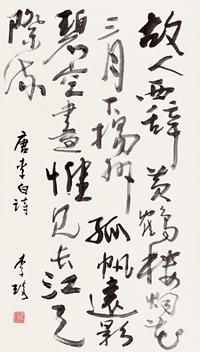 故人西辞黄鹤楼烟花
三月下扬州孤帆远影
碧空尽惟见长江天
际流
唐李白诗
李